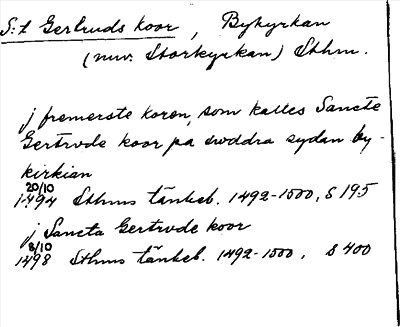 S:t Gertruds koor, Bykyrkan
(nuv. Storkyrkan) Sthm.
j fremerste koren, som kalles Sancte
Gertrvde koor pa swddra sydan by-
kirkian
20/10
1494 Sthms tänkeb. 1492-1500, S 195
j Sancta Gertrvde koor
8/10
1498 Sthms tänkeb. 1492-1500, S 400